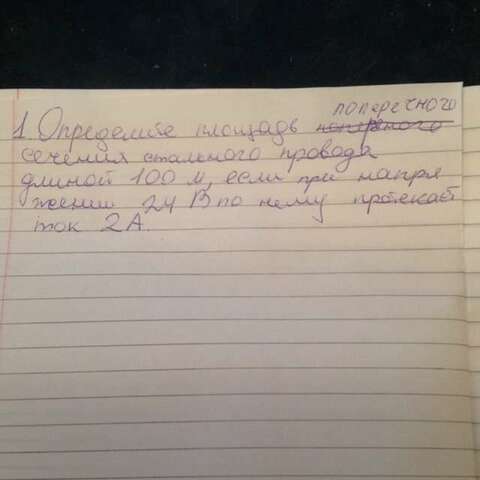 поперечного
1. Определите площадь поперечного
сечения стального провода
длиной 100 м, если при напря
жении 24 В по нему протекает
ток 2А.